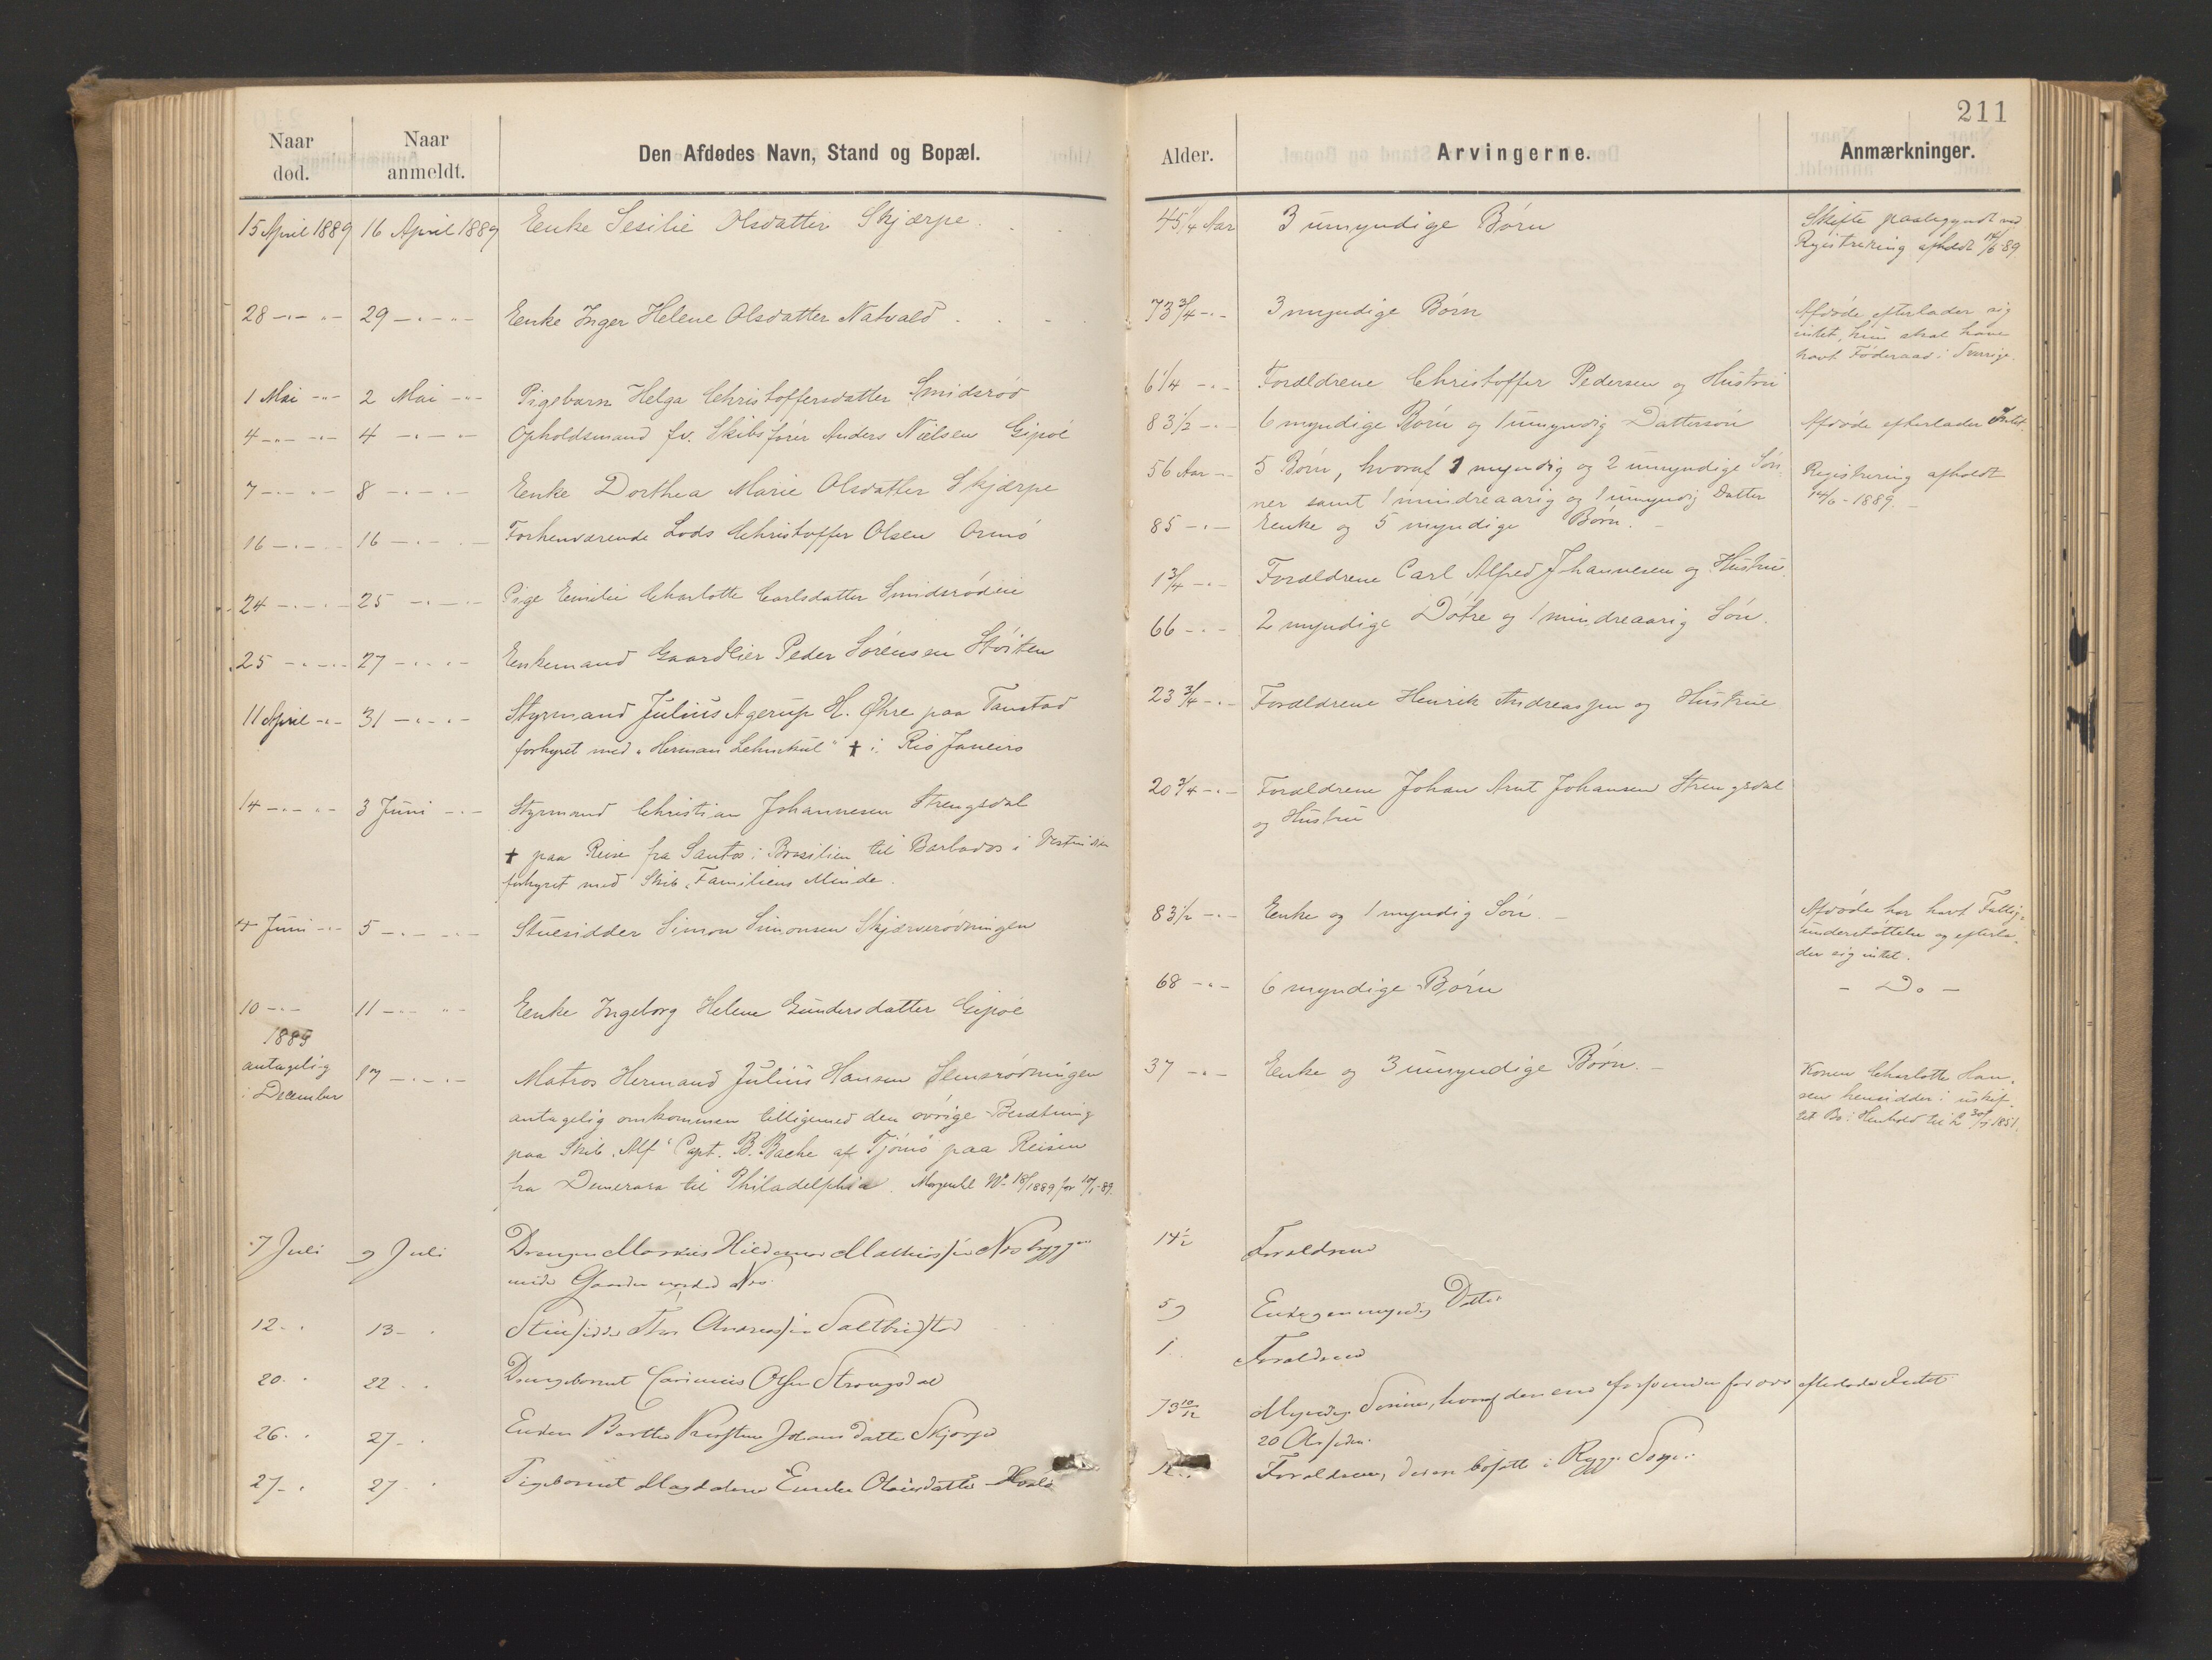 211
Naar død.
Naar anmeldt.
Den Afdødes Navn, Stand og Bopæl.
Alder.
Arvingerne.
Anmærkninger.
15 April 1889 16 April 1889 Enke Sesilie Olsdatter Skjærpe 45 1/4 Aar 3 umyndige Børn
Skifte paabegyndt ved
Registrering afholdt 14/6 89.
28 -"- "- 29 -"- "- Enke Inger Helene Olsdatter Natvald 73 3/4 -"- 3 myndige Børn
Afdøde efterlader sig
intet, hun skal have
havt Føderaad i Sverige.
1 Mai -"- 2 Mai -"- Pigebarn Helga Christoffersdatter Smidsrød 6 1/4 -"- Forældrene Christoffer Pedersen og Hustru
4 -"- -"- 4 -"- -"- Opholdsmand fv. Skibsfører Anders Nielsen Gipøe 83 1/2 -"- 6 myndige Børn og 1 umyndig Dattersøn Afdøde efterlader Intet.
7 -"- -"- 8 -"- -"- Enke Dorthea Marie Olsdatter Skjærpe 56 Aar -"- 5 Børn, hvoraf 1 myndig og 2 umyndige Søn-
ner samt 1 mindreaarig og 1 umyndig Datter
Registrering afholdt
14/6 - 1889.
16 -"- -"- 16 -"- -"- Forhenværende Lods Christoffer Olsen Ormø 85 -"- Enke og 5 myndige Børn.
24 -"- -"- 25 -"- -"- Pige Emilie Charlotte Carlsdatter Smidsrødeie 1 3/4 -"- Forældrene Carl Alfred Johannesen og Hustru
25 -"- -"- 27 -"- -"- Enkemand Gaardeier Peder Sørensen Støiten 66 -"- 2 myndige Døtre og 1 mindreaarig Søn.
11 April -"- 31 -"- -"- Styrmand Julius Agerup H. Øhre paa Tanstad 23 3/4 -"- Forældrene Henrik Andreassen og Hustrue
forhyret med "Herman Lehmkul" † i Rio Janeiro
14 -"- -"- 3 Juni -"- Styrmand Christian Johannesen Strengsdal 20 3/4 -"- Forældrene Johan Arnt Johansen Strengsdal
og Hustru
† paa Reise fra Santos i Brasilien til Barbados i Vestindien
forhyret med Skib "Familiens Minde.
4 Juni -"- 5 -"- -"- Stuesidder Simon Simonsen Skjærverødningen 83 1/2 -"- Enke og 1 myndig Søn.
Afdøde har havt Fattig-
understøttelse og efterla-
der sig intet.
10 -"- 11 -"- "- Enke Ingeborg Helene Gundersdatter Gipøe 68 -"- 6 myndige Børn - Do -
1888
antagelig
i December
17 -"- -"- Matros Hermand Julius Hansen Semsrødningen 37 -"- Enke og 3 umyndige Børn.
antagelig omkommen tilligemed den øvrige Besætning
paa Skib "Alf" Capt. B. Bache af Tjømø paa Reisen
fra Demerara til Philadelphia.
Konen Charlotte Han-
sen hensidder i uskif-
tet Bo i Henhold til L 30/7 1851.
7 Juli 9 Juli Drengen Markus Hildemar Mathiassen Nesbryggen 14 1/2 Forældrene
under Gaarden nordre Nes
12 - " 13 - " Stuesidder Thor Andreassen Saltbustad 59 Enke og en myndig Datter
20 - " 22 - " Drengebarnet Olsen Strengsdal 1 Forældrene
26 - " 27 - " Enken Berthe Kirstine Johansdatter Skjærpe 73 10/12 Myndige Sønner, hvoraf den ene forsvunden for over
20 Aar siden.
efterlader Intet
27 - " 27 - " Pigebarnet Magdalene Emilie Olausdatter Hvalø Forældrene, der ere bosatte i Rygge Sogn.